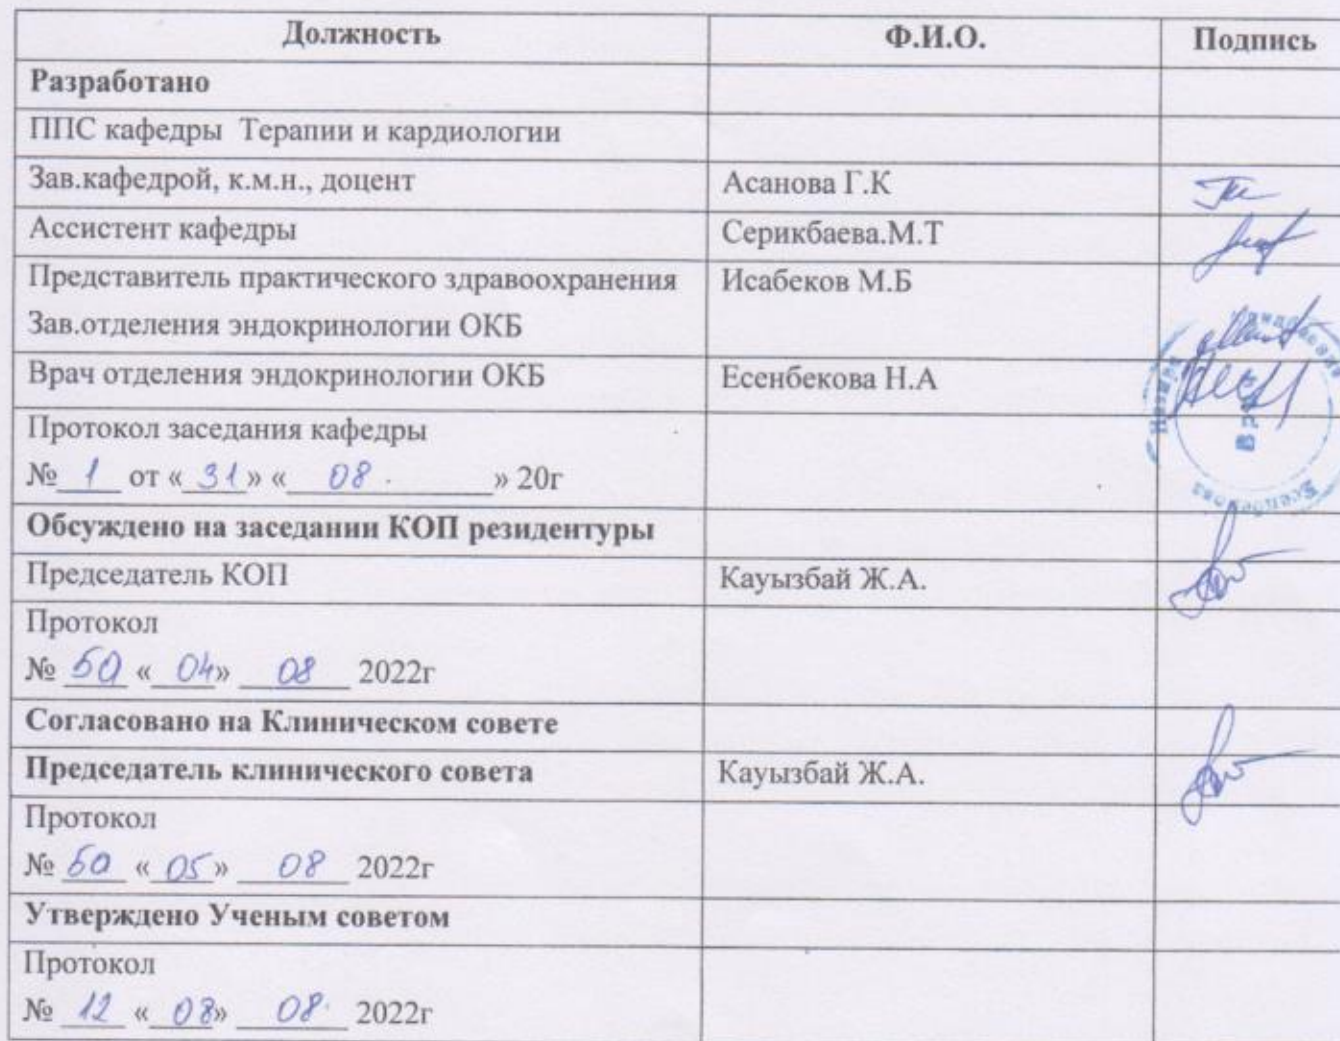 Должность Ф.И.О. Подпись
Разработано
ППС кафедры Терапии и кардиологии
Зав.кафедрой, к.м.н., доцент Асанова Г.К
Ассистент кафедры Серикбаева.М.Т
Представитель практического здравоохранения Исабеков М.Б
Зав.отделения эндокринологии ОКБ
Врач отделения эндокринологии ОКБ Есенбекова Н.А
Протокол заседания кафедры
№ 1 от «31» « 08 . » 20г
Обсуждено на заседании КОП резидентуры
Председатель КОП Кауызбай Ж.А.
Протокол
№ «04» 08 2022г
Согласовано на Клиническом совете
Председатель клинического совета Кауызбай Ж.А.
Протокол
№ «05» 08 2022г
Утверждено Ученым советом
Протокол
№ 12 «08» 08. 2022г
Врач
Есенбекова